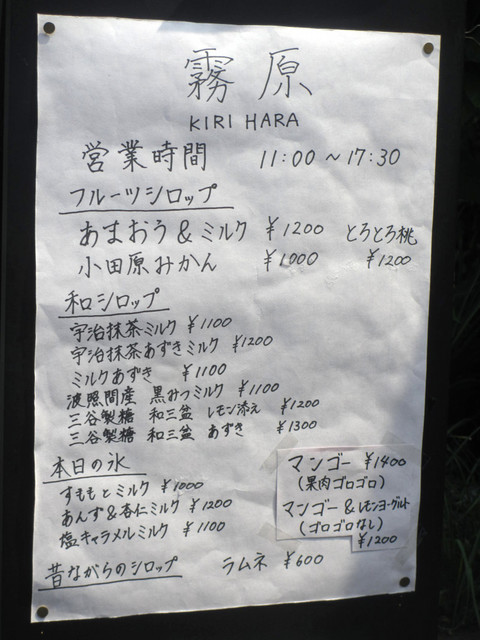 霧原
KIRI HARA
営業時間 11:00～17:30
フルーツシロップ
あまおう&ミルク ¥1200 とろとろ桃
小田原みかん ¥1000 ¥1200
和シロップ
宇治抹茶ミルク ¥1100
宇治抹茶あずきミルク ¥1200
ミルクあずき ¥1100
波照間産 黒みつミルク ¥1100
三谷製糖 和三盆 レモン添え ¥1200
三谷製糖 和三盆 あずき ¥1300
本日の氷
すももとミルク ¥1000
あんず&杏仁ミルク ¥1200
塩キャラメルミルク ¥1100
マンゴー ¥1400
(果肉ゴロゴロ)
マンゴー&レモンヨーグルト
(ゴロゴロなし)
¥1200
昔ながらのシロップ ラムネ ¥600